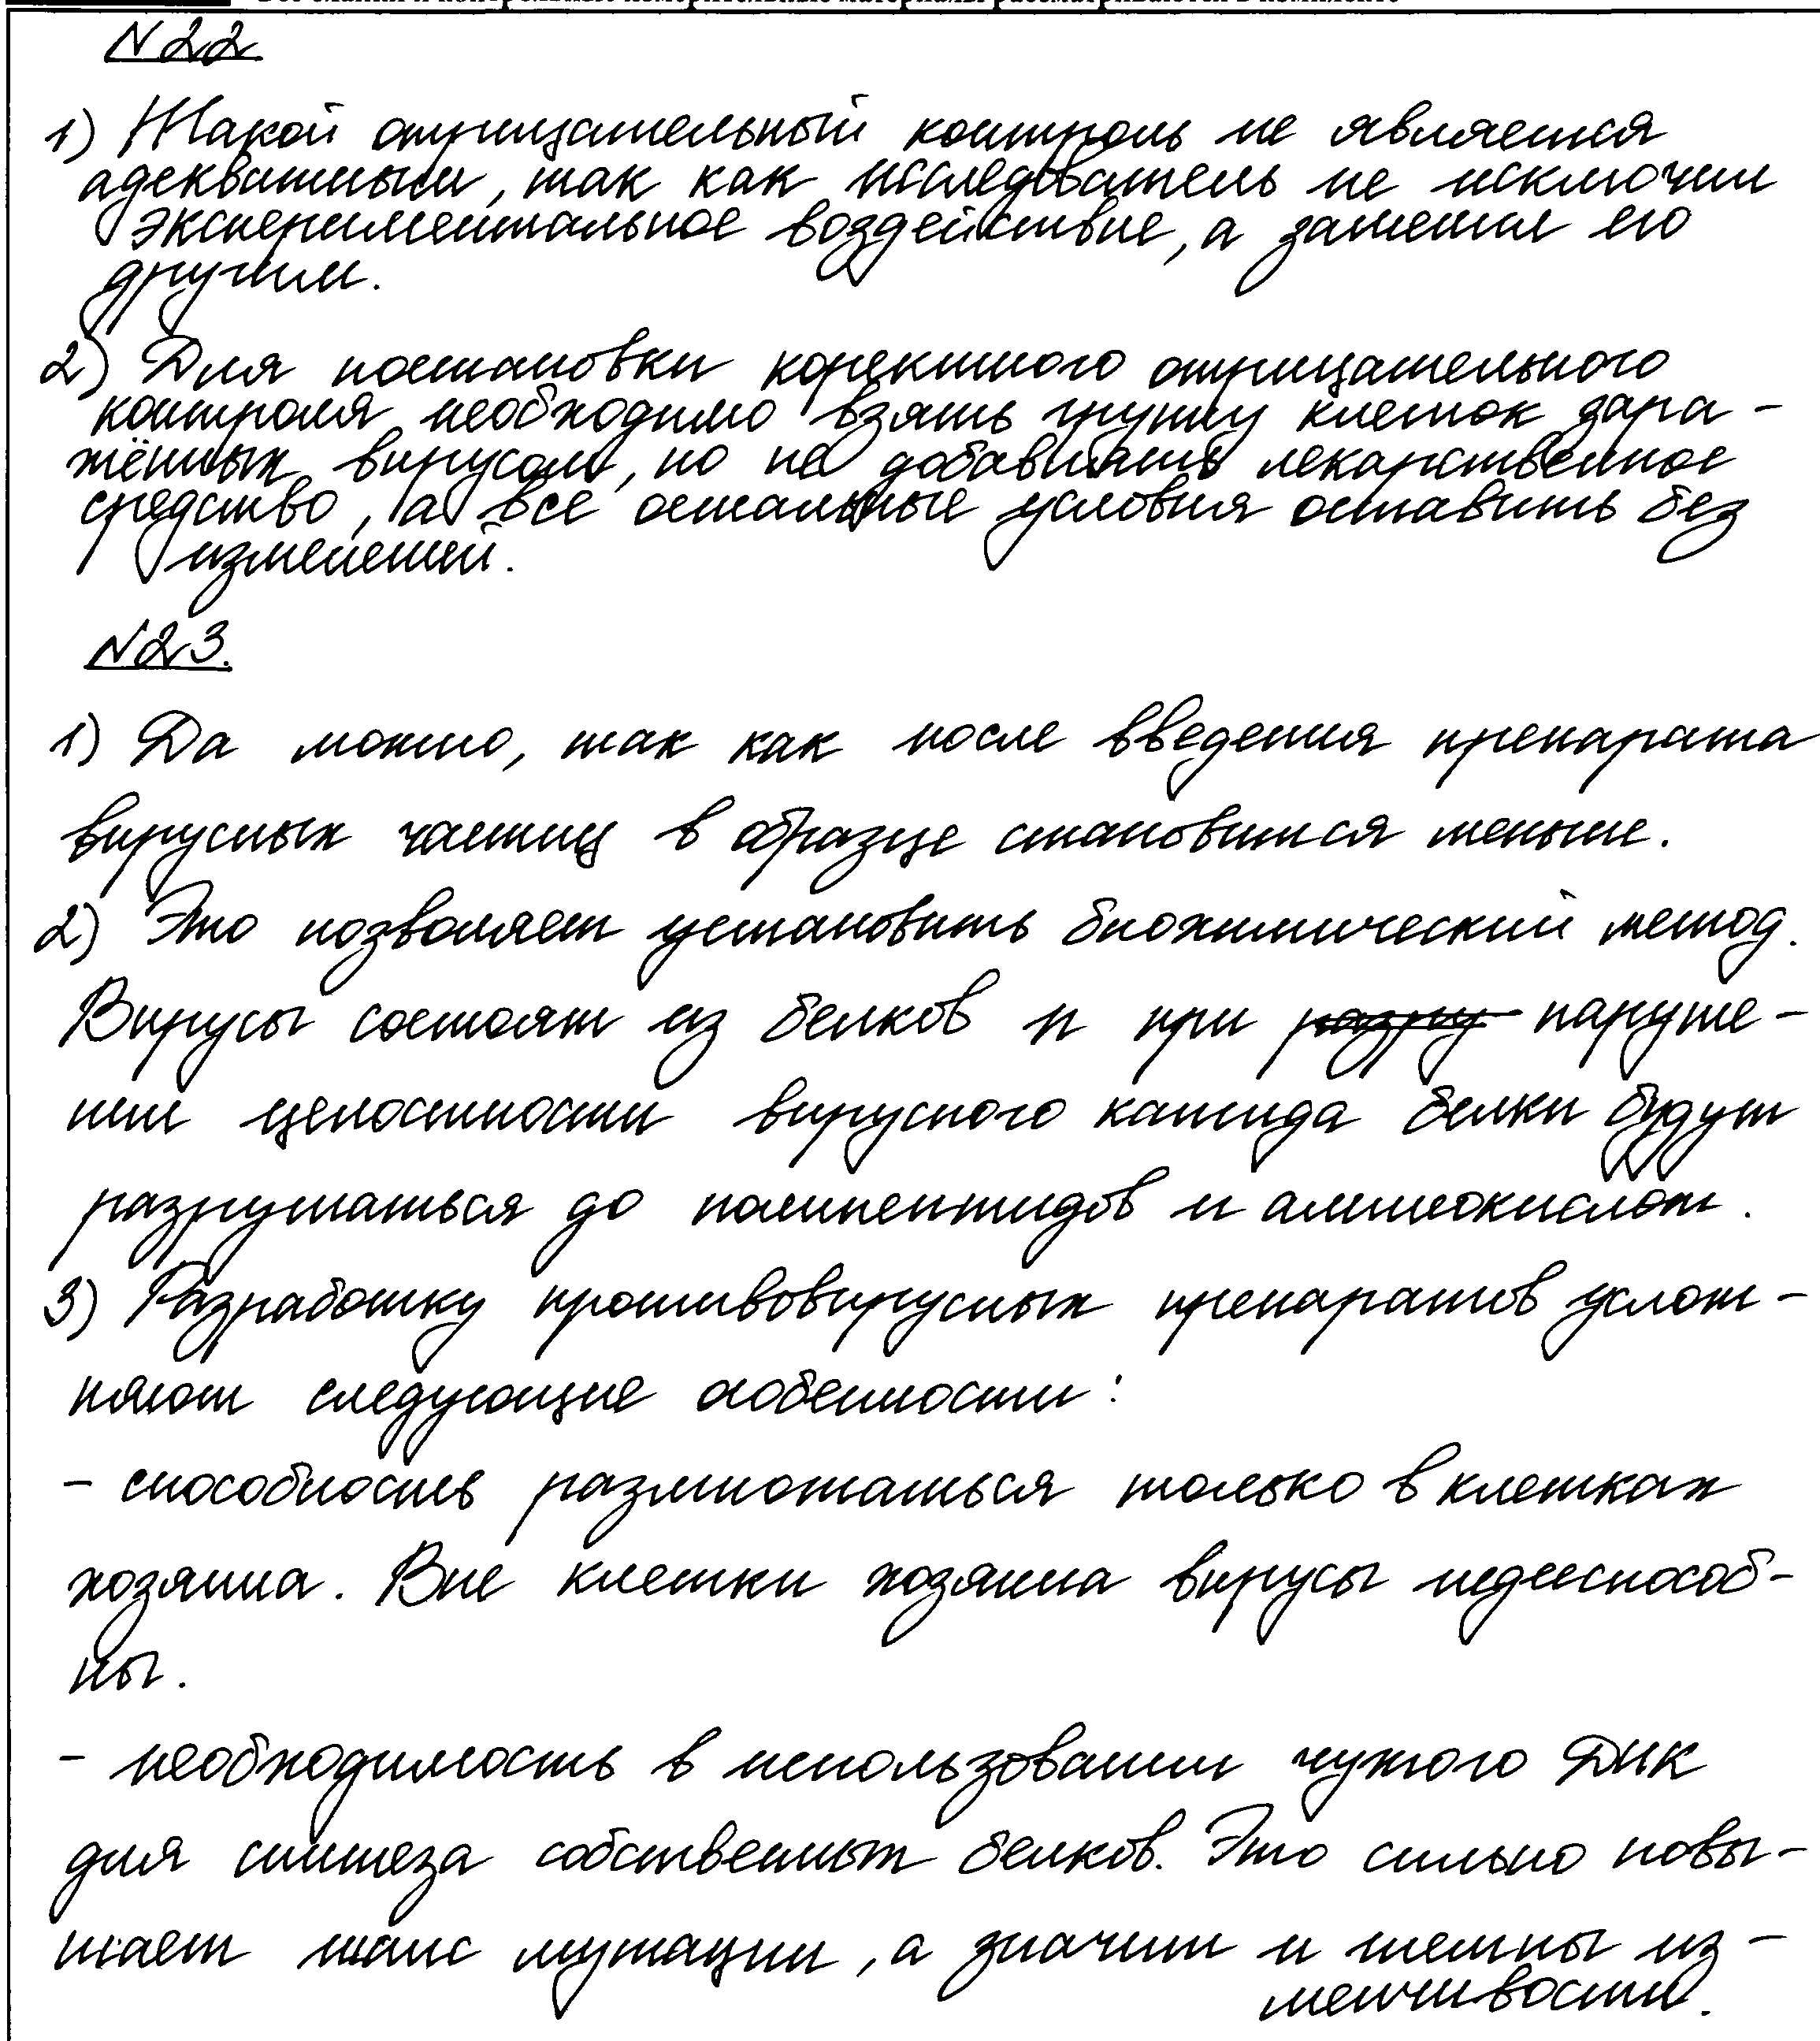 №22
1) Такой отрицательный контроль не является
адекватным, так как исследователь не исключил
экспериментальное воздействие, а заменил его
другим.
2) Для постановки коректного отрицательного
контроля необходимо взять группу клеток зара-
жённых вирусом, но не добавлять лекарственное
средство, а все остальные условия оставить без
изменений.
№23.
1) Да можно, так как после введения препарата
вирусных частиц в образце становится меньше.
2) Это позволяет установить биохимический метод.
Вирусы состоят из белков и при наруше-
нии целостности вирусного капсида белки будут
разрушаться до полипептидов и аминокислот.
3) Разработку противовирусных препаратов услож-
няют следующие особенности:
- способность размножаться только в клетках
хозяина. Вне клетки хозяина вирусы недееспособ-
ны.
- необходимость в использовании чужого ДНК
для синтеза собственных белков. Это сильно повы-
шает шанс мутации, а значит и темпы из-
менчивости.